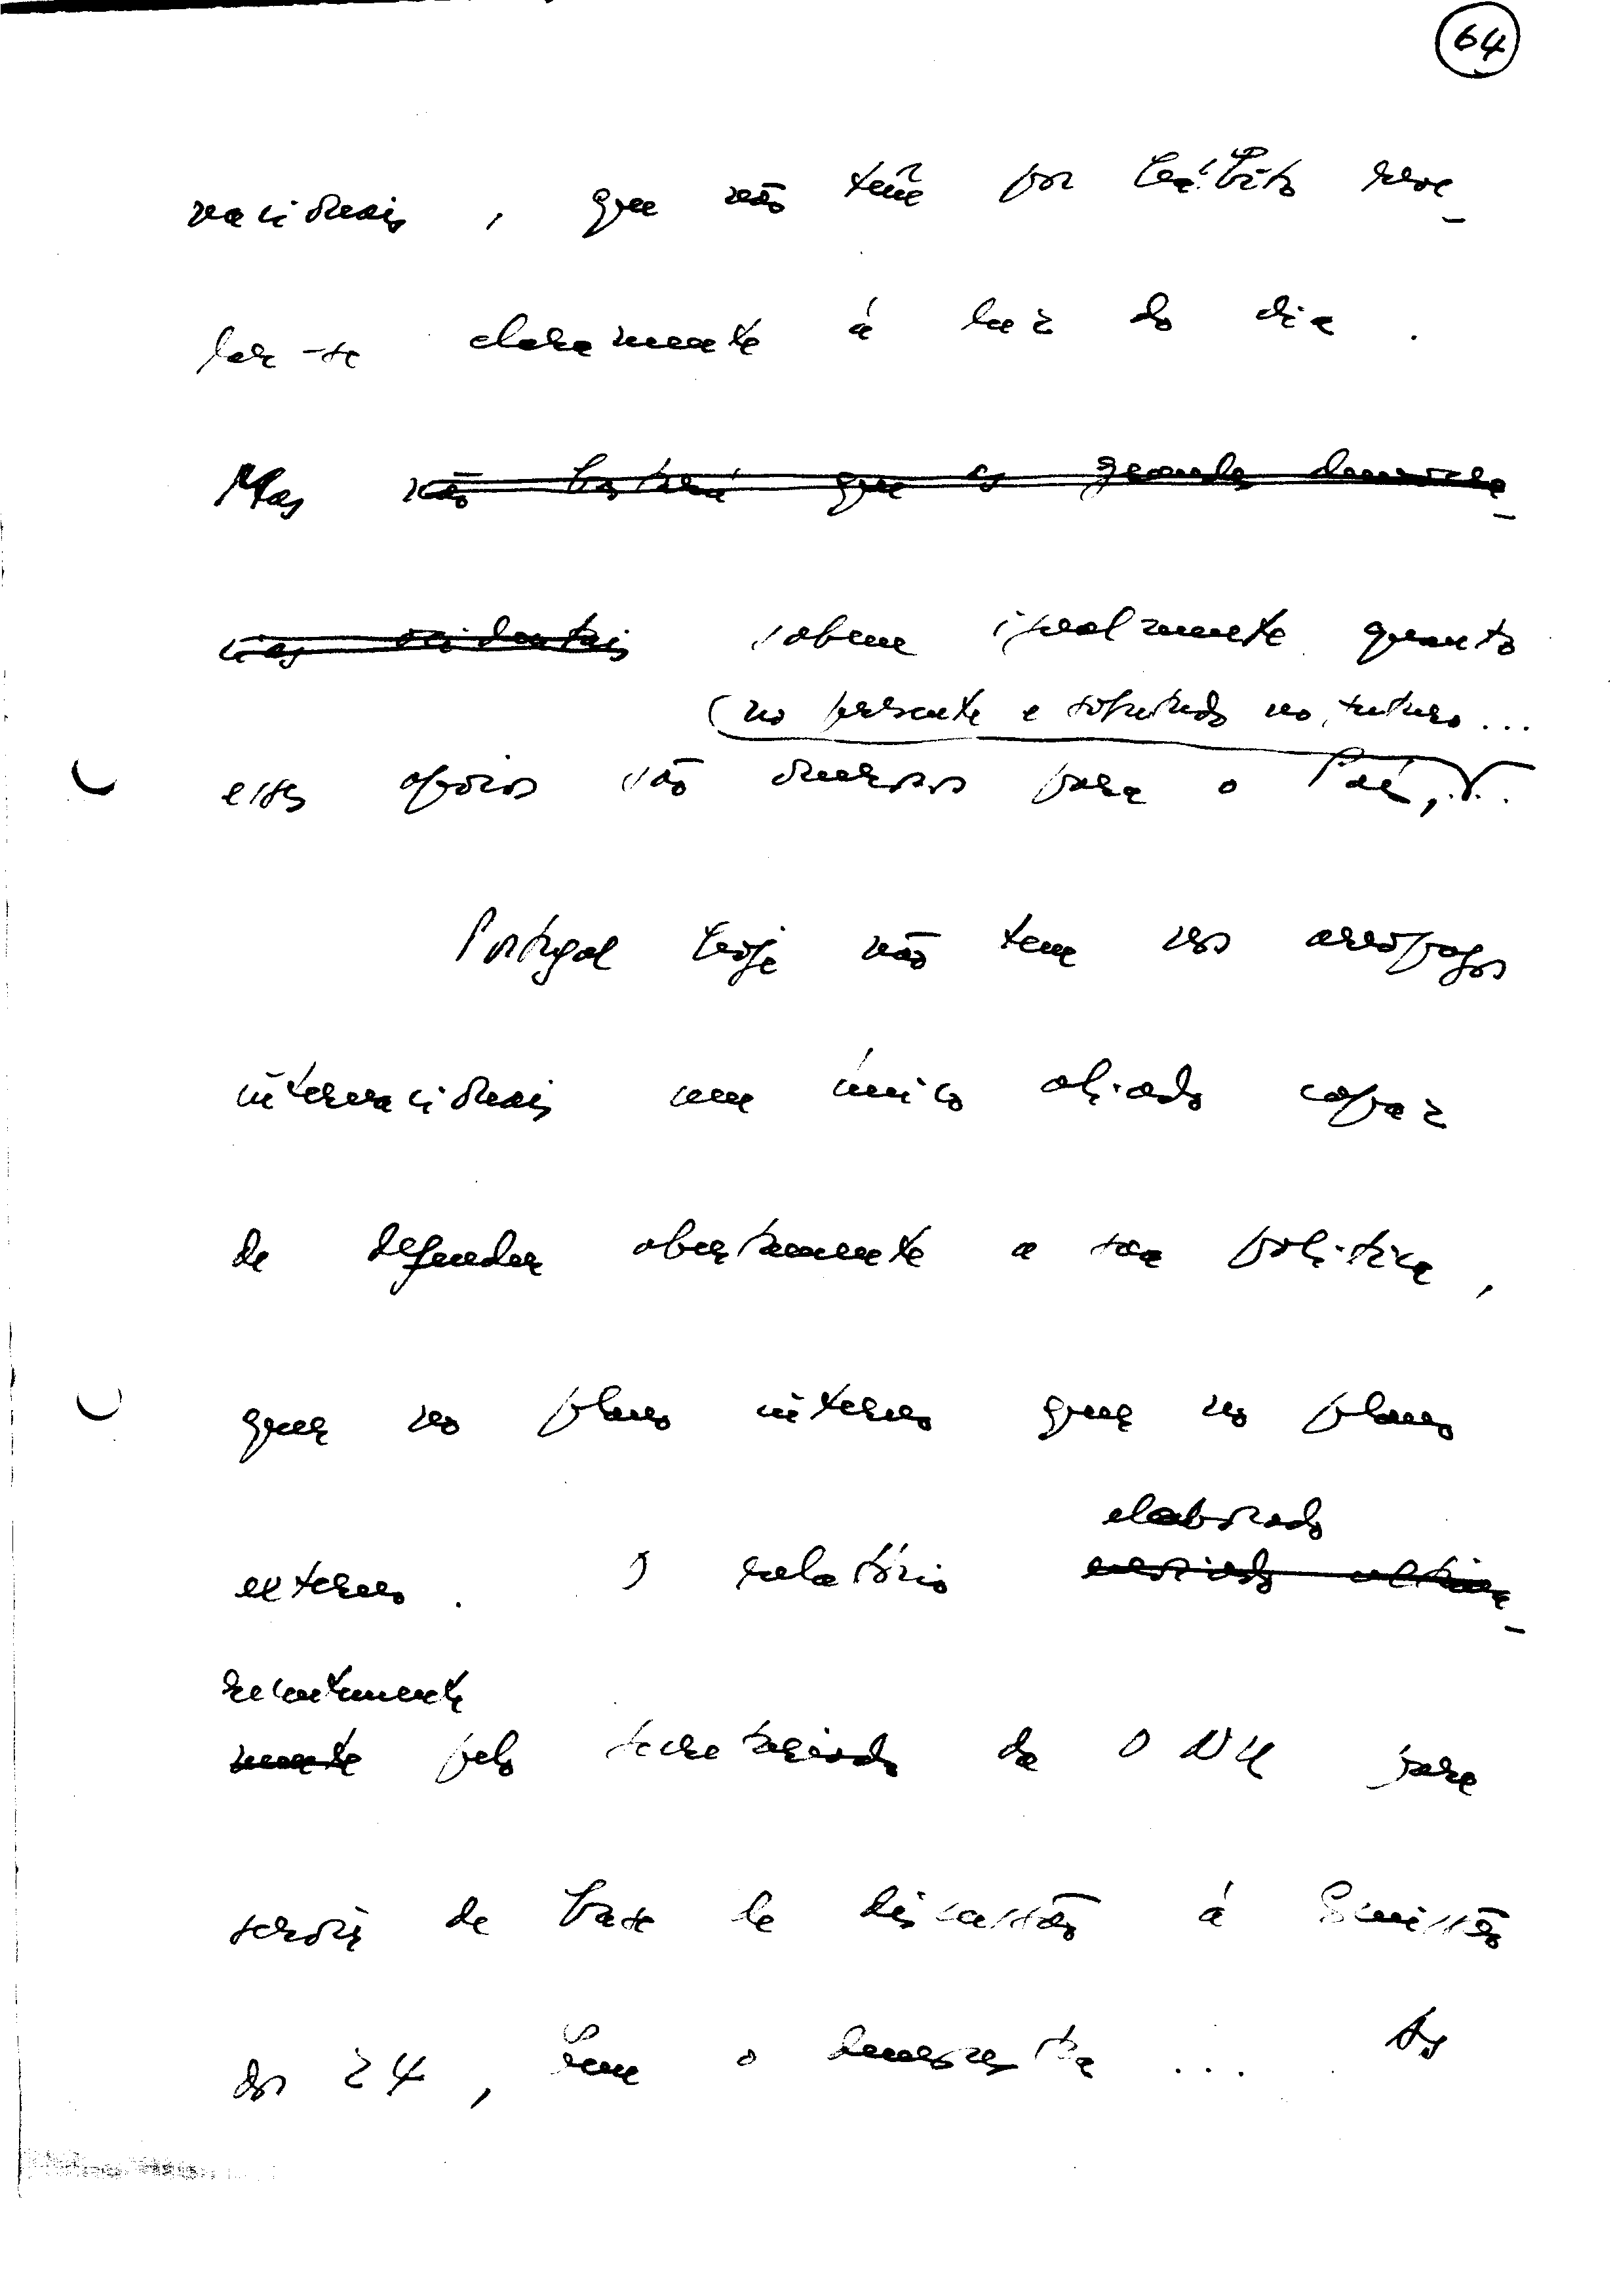 64
nacionais, que não têm por hábito reve-
lar-se claramente à luz do dia.
Mas não bastará que as grandes democra-
cias ocidentais sabem igualmente quanto
(no presente e sobretudo no futuro...
esses apoios são onerosos para o País,...
Portugal hoje não tem nos areópagos
internacionais um único aliado capaz
de defender abertamente a sua política,
quer no plano interno quer no plano
elaborado
externo. O relatório enviado ultima-
recentemente
mente pelo secretariado da ONU para
servir de base de discussão à Comissão
dos 24, bem o demonstra... As